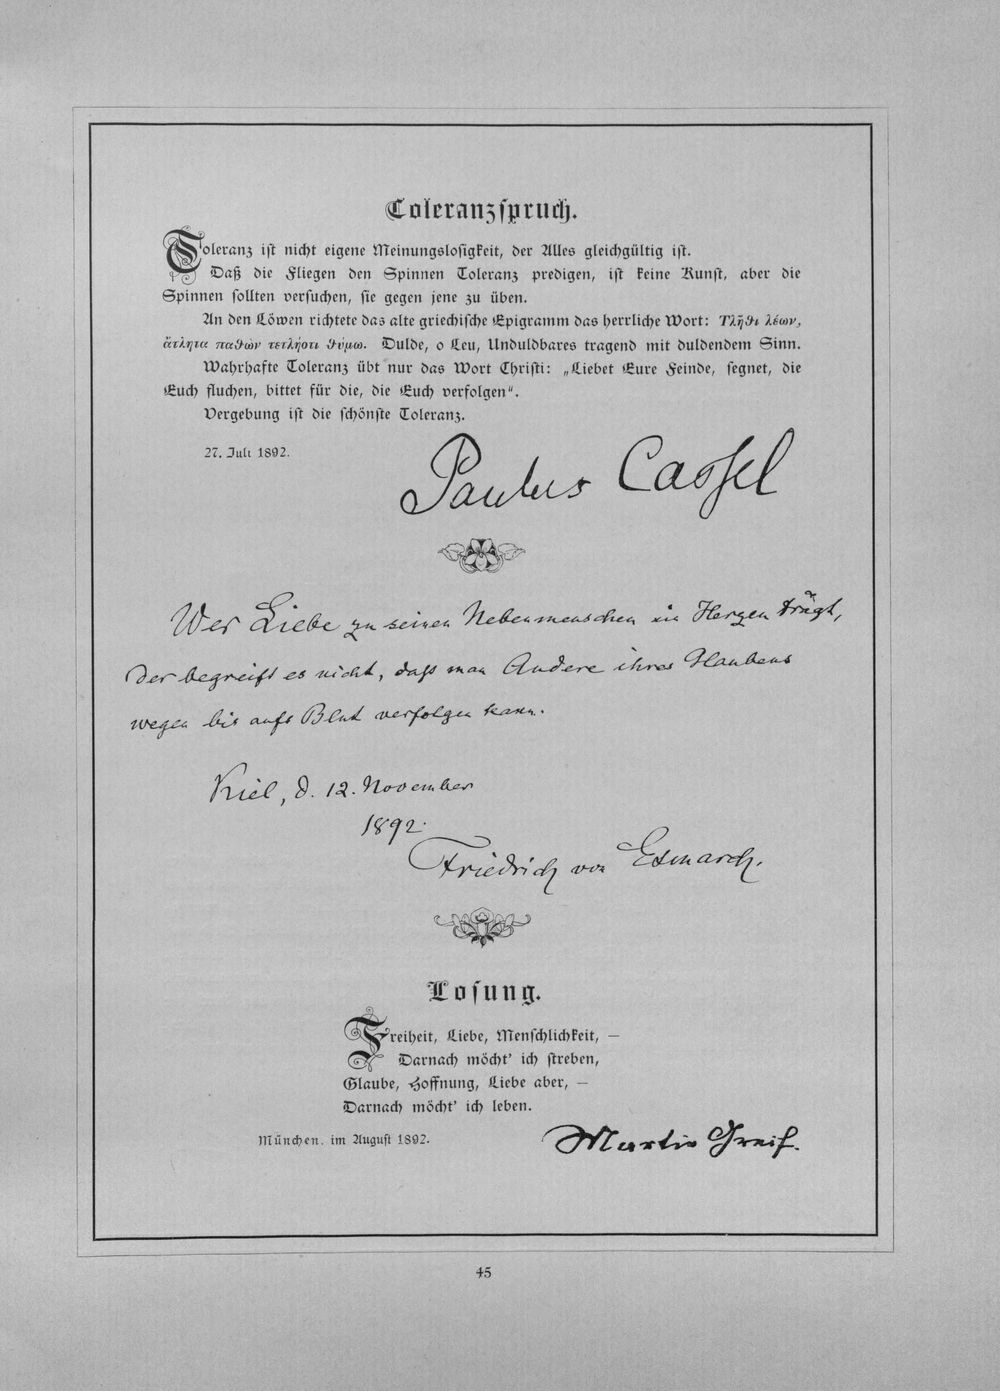 Toleranzspruch.
Toleranz ist nicht eigene Meinungslosigkeit, der Alles gleichgültig ist.
Daß die Fliegen den Spinnen Toleranz predigen, ist keine Kunst, aber die
Spinnen sollten versuchen, sie gegen jene zu üben.
An den Löwen richtete das alte griechische Epigramm das herrliche Wort: Τλῆθι λέων,
ἄτλητα παθὼν τετληότι θύμω. Dulde, o Leu, Unduldbares tragend mit duldendem Sinn.
Wahrhafte Toleranz übt nur das Wort Christi: „Liebet Eure Feinde, segnet, die
Euch fluchen, bittet für die, die Euch verfolgen“.
Vergebung ist die schönste Toleranz.
27. Juli 1892.
Paulus Cassel
Wer Liebe zu seinen Nebenmenschen im Herzen trägt,
der begreift es nicht, daß man Andere ihres Glaubens
wegen bis aufs Blut verfolgen kann.
Kiel, d. 12. November
1892.
Friedrich von Esmarch.
Losung.
Freiheit, Liebe, Menschlichkeit, —
Darnach möcht' ich streben,
Glaube, Hoffnung, Liebe aber, —
Darnach möcht' ich leben.
München, im August 1892.
Martin Greif.
45